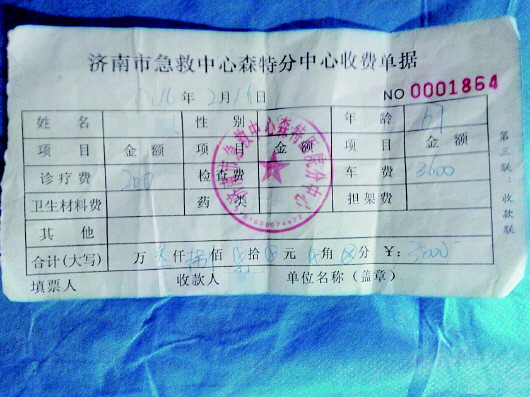 济南市急救中心森特分中心收费单据
2016年2月16日 NO 0001864
姓名 性别 年龄 67
项目 金额 项目 金额 项目 金额
诊疗费 200 检查费 车费 3600
卫生材料费 药类 担架费
其他
合计(大写) 万 仟 佰 拾 元 角 分 ¥:
填票人 收款人 单位名称(盖章)
第三联 收款联